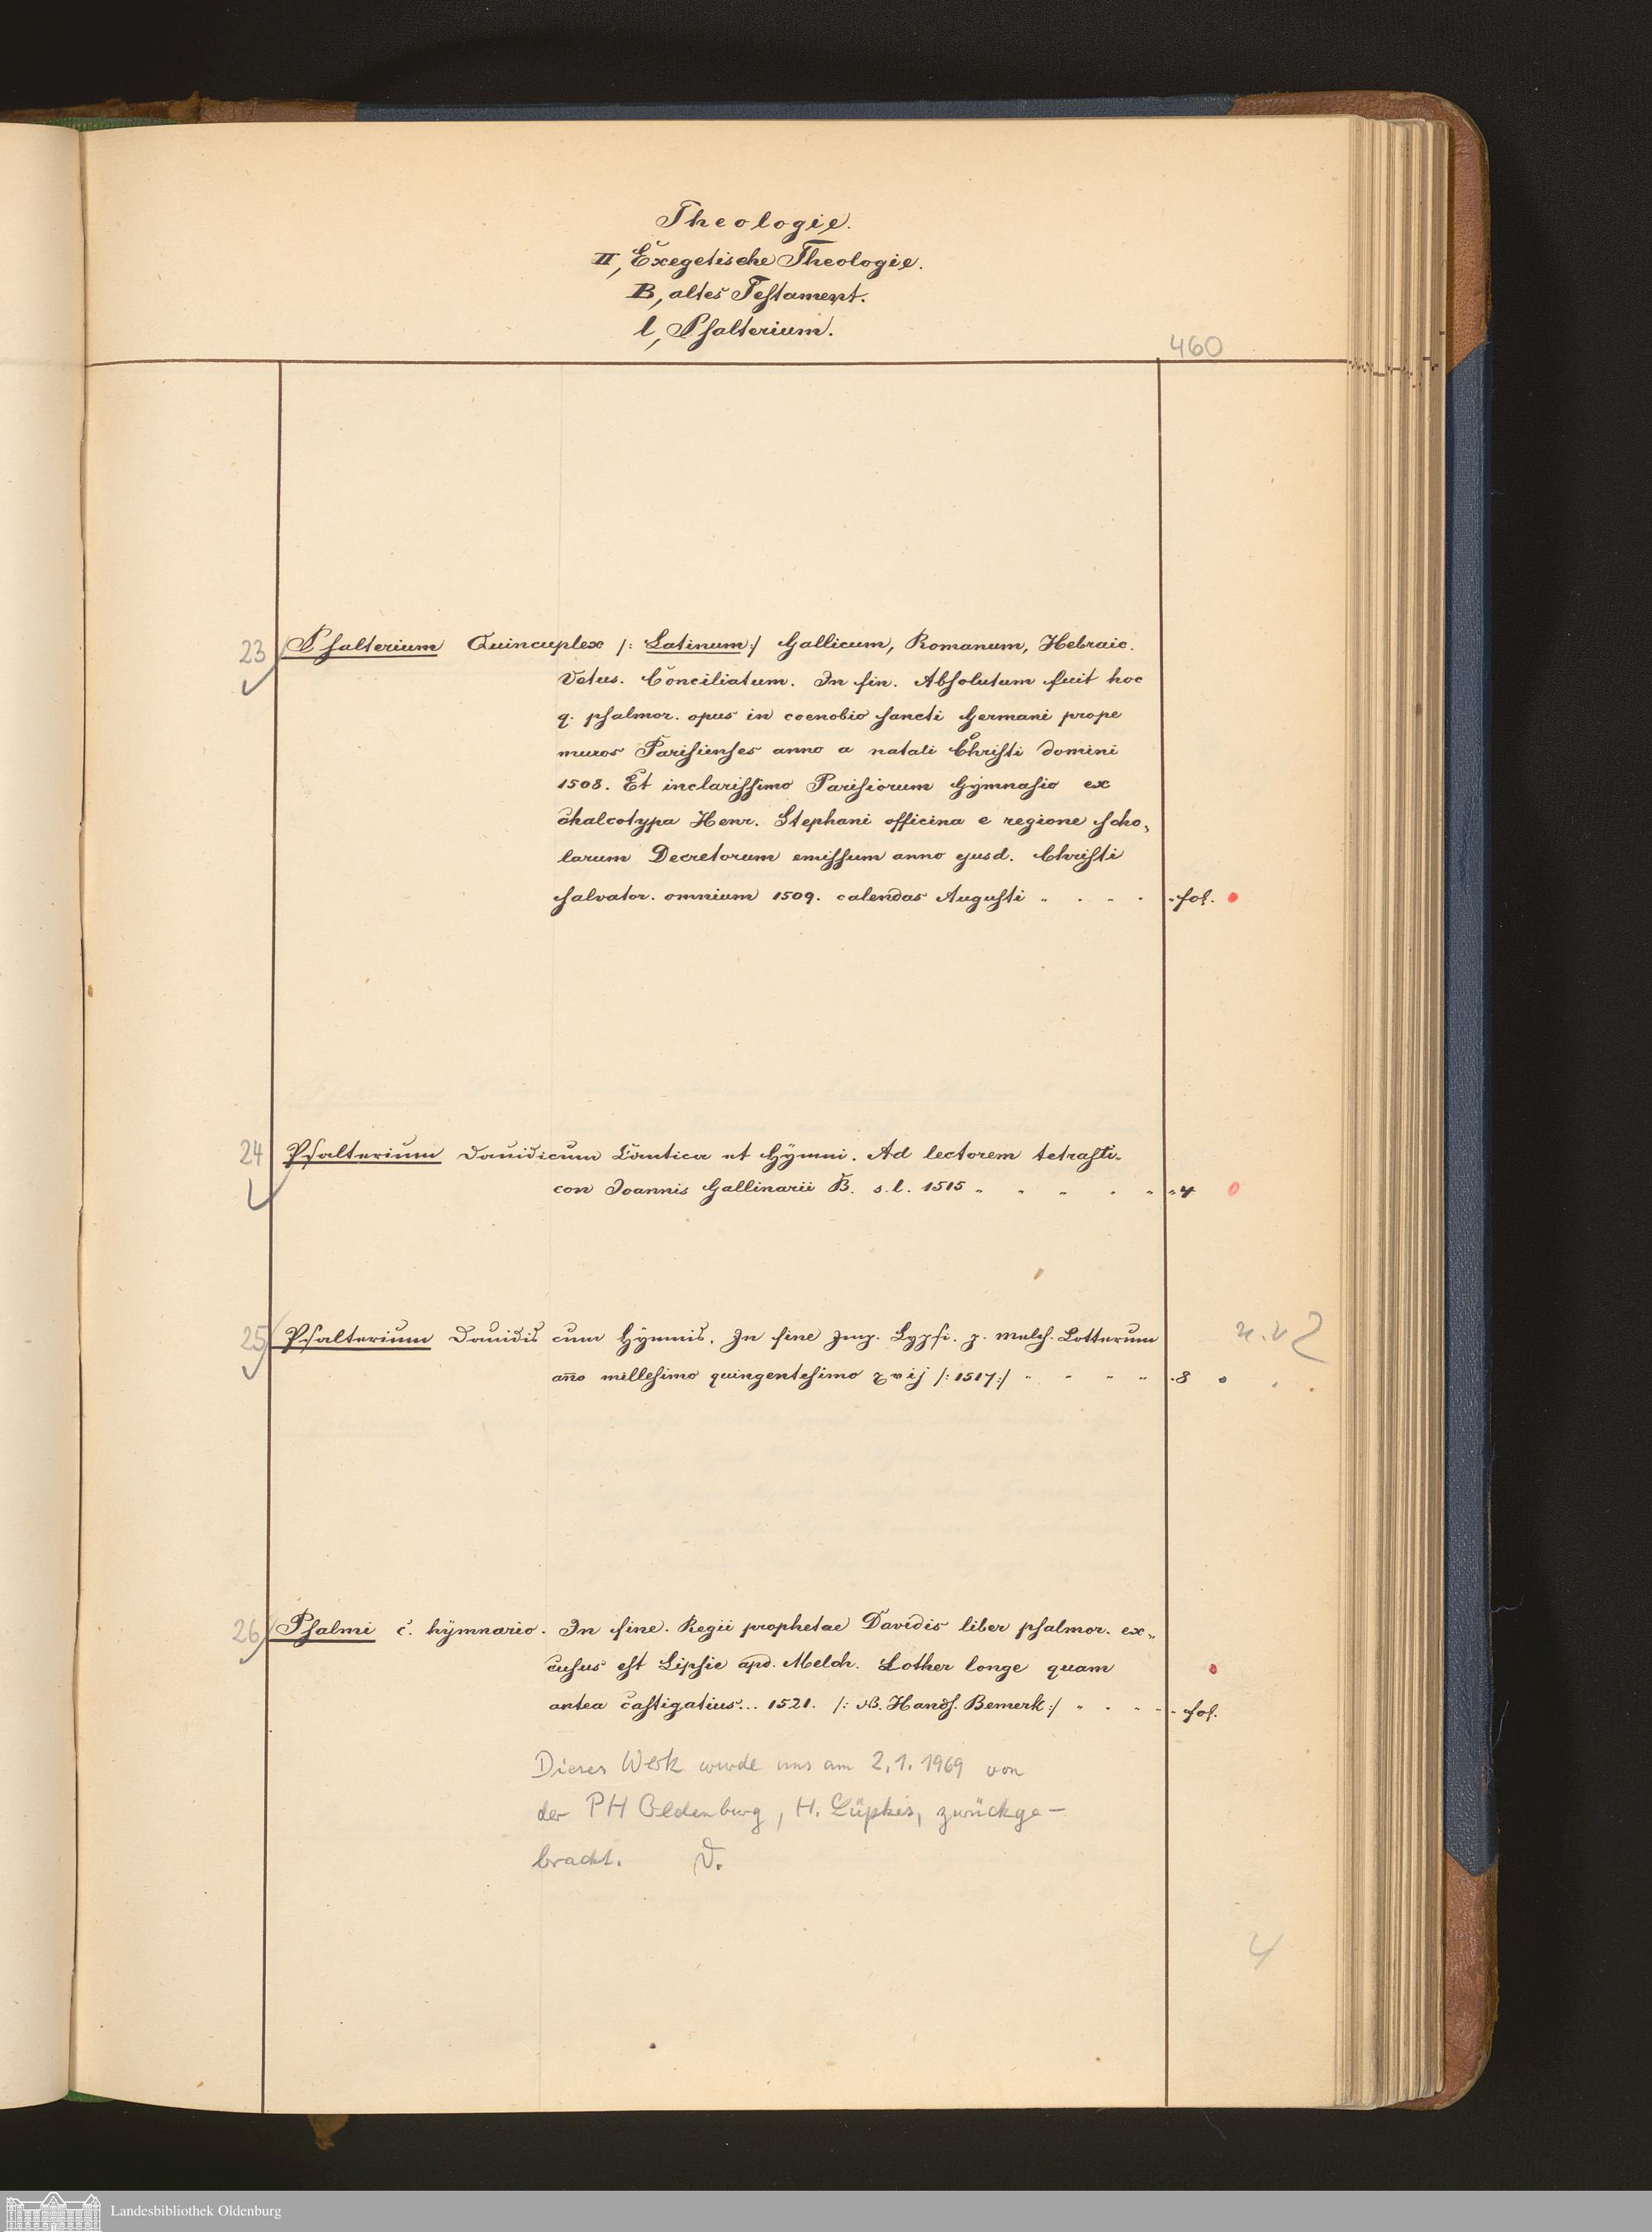 Theologie.
II, Exegetische Theologie.
B, altes Testament.
l, Psalterium.
460
23 Psalterium Quincuplex /: Latinum :/ Gallicum, Romanum, Hebraic.
Vetus. Conciliatum. In fin. Absolutum fuit hoc
q. psalmor. opus in coenobio sancti Germani prope
muros Parisienses anno a natali Christi domini
1508. Et inclarissimo Parisiorum Gymnasio ex
chalcotypa Henr. Stephani officina e regione scho„
larum Decretorum emissum anno ejusd. Christi
salvator. omnium 1509. calendas Augusti " . . . . fol.
24 Psalterium Davidicum Cantica et Hymni. Ad lectorem tetrasti„
con Joannis Gallinarii B. s. l. 1515 " " " . " " 4
25 Psalterium Davidis cum Hymnis. In fine Imp. Lypsi. p. Melch. Lotterum
año millesimo quingentesimo xvij /: 1517 :/ " " " " . 8
26 Psalmi c. hymnario. In fine. Regii prophetae Davidis liber psalmor. ex„
cusus est Lipsie apd. Melch. Lother longe quam
antea castigatius... 1521. /: NB. Hands. Bemerk :/ " . " " fol.
Dieses Werk wurde uns am 2.1.1969 von
der PH Oldenburg, H. Lüpkes, zurückge-
bracht. D.
4
Landesbibliothek Oldenburg